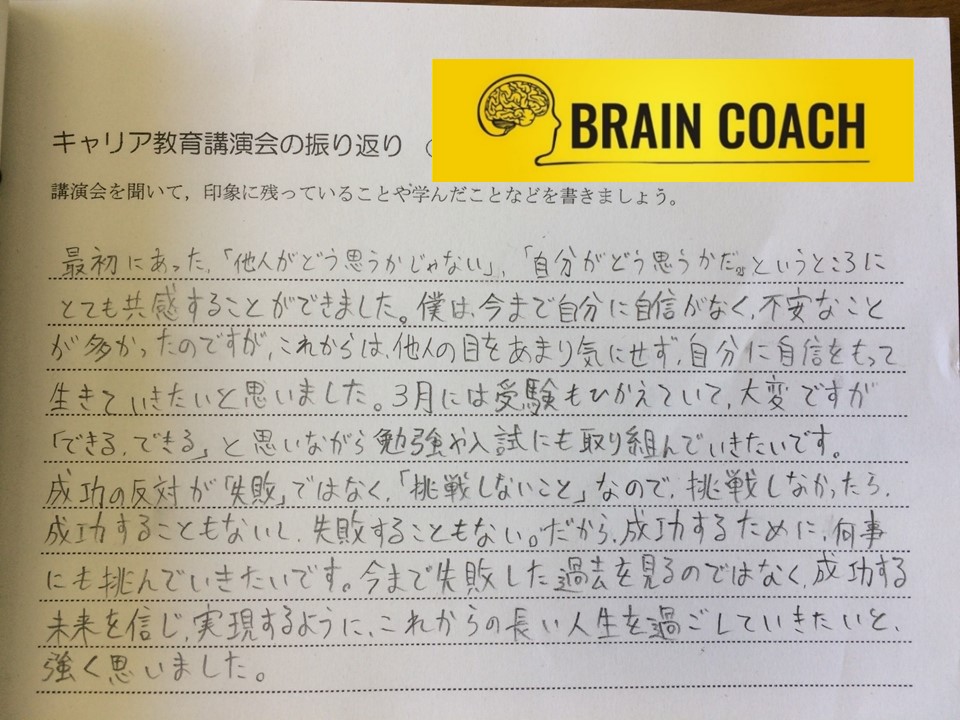 BRAIN COACH
キャリア教育講演会の振り返り（
講演会を聞いて，印象に残っていることや学んだことなどを書きましょう。
最初にあった、「他人がどう思うかじゃない」、「自分がどう思うかだ。」というところに
とても共感することができました。僕は、今まで自分に自信がなく、不安なこと
が多かったのですが、これからは、他人の目をあまり気にせず、自分に自信をもって
生きていきたいと思いました。3月には受験もひかえていて、大変ですが
「できる、できる」と思いながら勉強や入試にも取り組んでいきたいです。
成功の反対が「失敗」ではなく、「挑戦しないこと」なので、挑戦しなかったら、
成功することもないし、失敗することもない。だから、成功するために、何事
にも挑んでいきたいです。今まで失敗した過去を見るのではなく、成功する
未来を信じ、実現するように、これからの長い人生を過ごしていきたいと、
強く思いました。